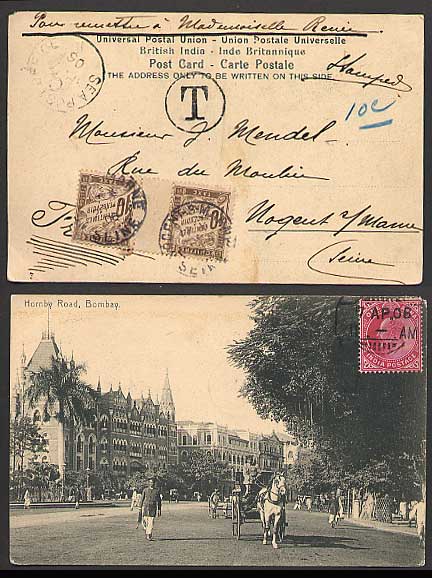 Pour remettre à Mademoiselle Renée
Universal Postal Union - Union Postale Universelle
British India - Inde Britannique
Post Card - Carte Postale
(THE ADDRESS ONLY TO BE WRITTEN ON THIS SIDE.)
Stamped
SEA POST OFFICE
T
10c
Monsieur J. Mendel
Rue du Moulin
Nogent s/ Marne
(Seine)
10
10
SEINE
SEINE
Hornby Road, Bombay.
AP.06
AM
INDIA POSTAGE